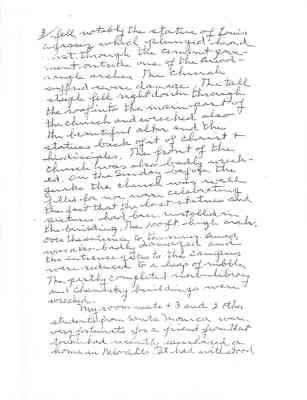 fell notably the statue of Louis
Agassiz which plunged head
first through the cement pave-
ment outside one of the quad-
rangle arches. The Church
suffered severe damage. The tall
steeple fell right down through
the roof into the main part of
the church and wrecked also
the beautiful altar and the
statues back of it of Christ +
his disciples. The front of the
Church was also badly wreck-
ed. On the Sunday before the
quake the church was
filled for we were celebrating
the fact that the last statues and
pictures had been installed in
the building. The 100 ft. high arch
over the entrance to the
was also badly damaged and
the entrance gates to the Campus
were reduced to a heap of rubble.
The partly completed library
and Chemistry buildings were
wrecked.
My room mate + I and 2 other
students from Santa Monica were
very fortunate for a friend from that
town had recently purchased a
home in Palo Alto. It had withstood